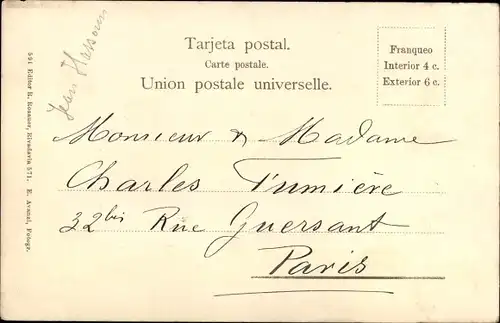 Tarjeta postal.
Carte postale.
Union postale universelle.
Franqueo
Interior 4 c.
Exterior 6 c.
Jean Hassoun
Monsieur & Madame
Charles Fumière
32bis Rue Guersant
Paris
594 Editor R. Rosauer, Rivadavia 571. E. Avanzi, Fotogr.